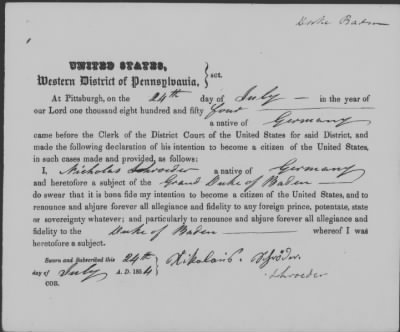 Duke Baden
UNITED STATES,
Western District of Pennsylvania, } sct.
At Pittsburgh, on the 24th day of July in the year of
our Lord one thousand eight hundred and fifty four
a native of Germany
came before the Clerk of the District Court of the United States for said District, and
made the following declaration of his intention to become a citizen of the United States,
in such cases made and provided, as follows:
I, Nicholas Schroeder a native of Germany
and heretofore a subject of the Grand Duke of Baden
do swear that it is bona fide my intention to become a citizen of the United States, and to
renounce and abjure forever all allegiance and fidelity to any foreign prince, potentate, state
or sovereignty whatever; and particularly to renounce and abjure forever all allegiance and
fidelity to the Duke of Baden whereof I was
heretofore a subject.
Sworn and Subscribed this 24th
day of July A. D. 1854
Nikolaus Schröder
Schroeder